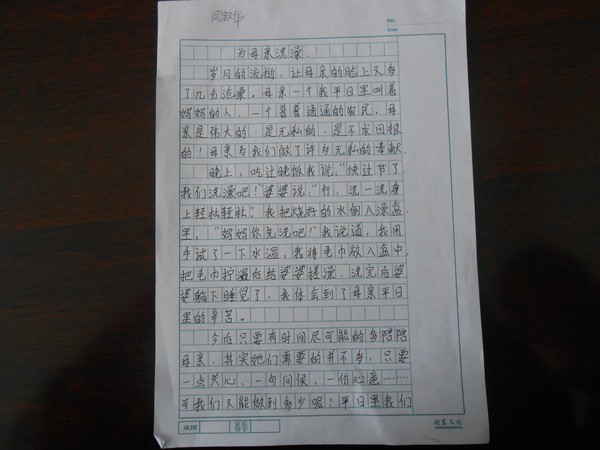 NO.
Date
为母亲洗澡
岁月的流逝，让母亲的脸上又多
了几分沧桑。母亲一个我平日里叫着
妈妈的人，一个普普通通的农民，母
亲是伟大的，是无私的，是不求回报
的！母亲为我们做了许多无私的奉献。
晚上，吃过晚饭我说：“快过节了
我们洗澡吧！”婆婆说：“行，洗一洗身
上轻松轻松。”我把烧好的水倒入澡盆
里，“妈妈你先洗吧！”我说道，我用
手试了一下水温，我将毛巾放入盆中，
把毛巾拧湿后给婆婆搓澡，洗完后婆
婆躺下睡觉了，我体会到了母亲平日
里的辛苦。
今后只要有时间尽可能的多陪陪
母亲，其实她们需要的并不多，只要
一点关心，一句问候，一份心意……
可我们又能做到多少呢？平日里我们